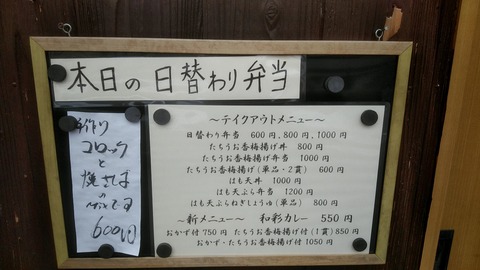 本日の日替わり弁当
手作り
コロッケ
と
焼さば
の
Mixです
600円
～テイクアウトメニュー～
日替わり弁当 600円,800円,1000円
たちうお香梅揚げ丼 800円
たちうお香梅揚げ弁当 1000円
たちうお香梅揚げ(単品・2貫) 600円
はも天丼 1000円
はも天ぷら弁当 1200円
はも天ぷらねぎしょうゆ(単品) 800円
～新メニュー～ 和彩カレー 550円
おかず付750円 たちうお香梅揚げ付(1貫)850円
おかず・たちうお香梅揚げ付1050円